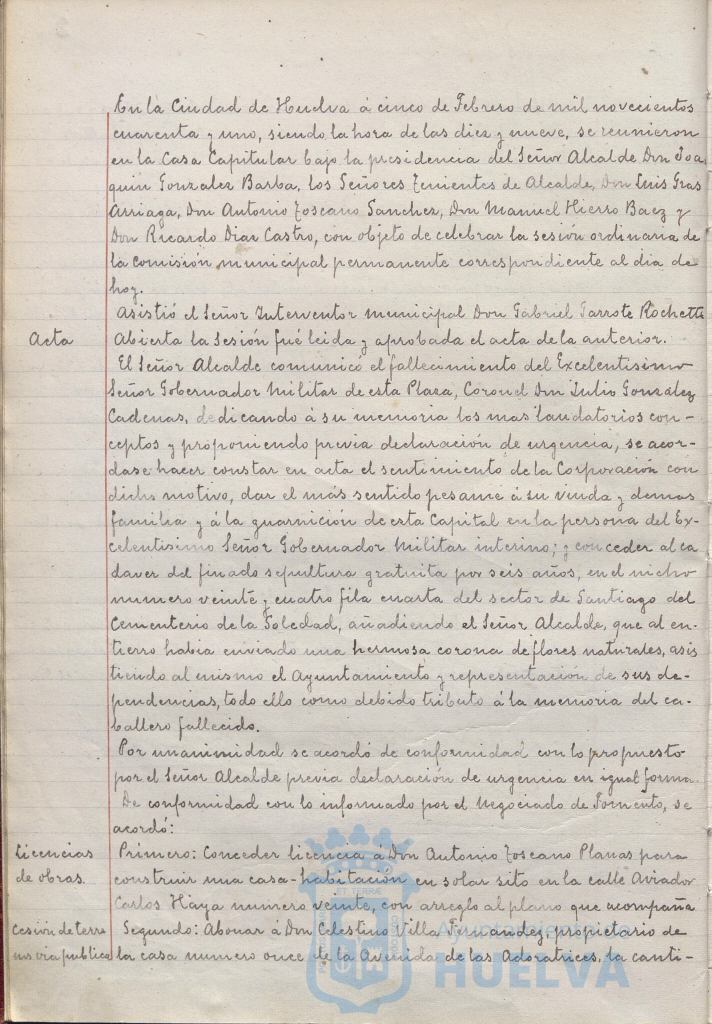 En la Ciudad de Huelva á cinco de Febrero de mil novecientos
cuarenta y uno, siendo la hora de las diez y nueve, se reunieron
en la Casa Capitular bajo la presidencia del Señor Alcalde Don Joa
quin Gonzalez Barba, los Señores Tenientes de Alcalde, Don Luis Gras
Arriaga, Don Antonio Toscano Sanchez, Don Manuel Hierro Baez y
Don Ricardo Diaz Castro, con objeto de celebrar la sesión ordinaria de
la Comisión municipal permanente correspondiente al dia de
hoy.
Asistió el Señor Interventor municipal Don Gabriel Garrote Rochette
Acta
Abierta la sesión fué leida y aprobada el acta de la anterior.
El Señor Alcalde comunicó el fallecimiento del Excelentisimo
Señor Gobernador Militar de esta Plaza, Coronel Don Julio González
Cadenas, dedicando á su memoria los mas laudatorios con-
ceptos y proponiendo previa declaración de urgencia, se acor-
dase hacer constar en acta el sentimiento de la Corporación con
dicho motivo, dar el más sentido pesame á su viuda y demas
familia y á la guarnición de esta Capital en la persona del Ex-
celentisimo Señor Gobernador Militar interino; y conceder al ca
daver del finado sepultura gratuita por seis años, en el nicho
numero veinte y cuatro fila cuarta del sector de Santiago del
Cementerio de la Soledad, añadiendo el Señor Alcalde, que al en-
tierro habia enviado una hermosa corona de flores naturales, asis
tiendo al mismo el Ayuntamiento y representación de sus de-
pendencias, todo ello como debido tributo á la memoria del ca-
ballero fallecido.
Por unanimidad se acordó de conformidad con lo propuesto
por el Señor Alcalde previa declaración de urgencia en igual forma.
De conformidad con lo informado por el Negociado de Fomento, se
acordó:
Licencias
de obras.
Primero: Conceder licencia á Don Antonio Toscano Planas para
construir una casa-habitación en solar sito en la calle Aviador
Carlos Haya numero veinte, con arreglo al plano que acompaña
Cesión de terre
nos via publica
Segundo: Abonar á Don Celestino Villa Fernandez, propietario de
la casa numero once de la Avenida de las Adoratrices, la canti-
Ayuntamiento de
HUELVA